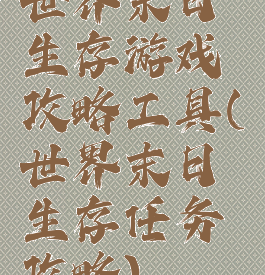 世界末日
生存游戏
攻略工具(
世界末日
生存任务
攻略)